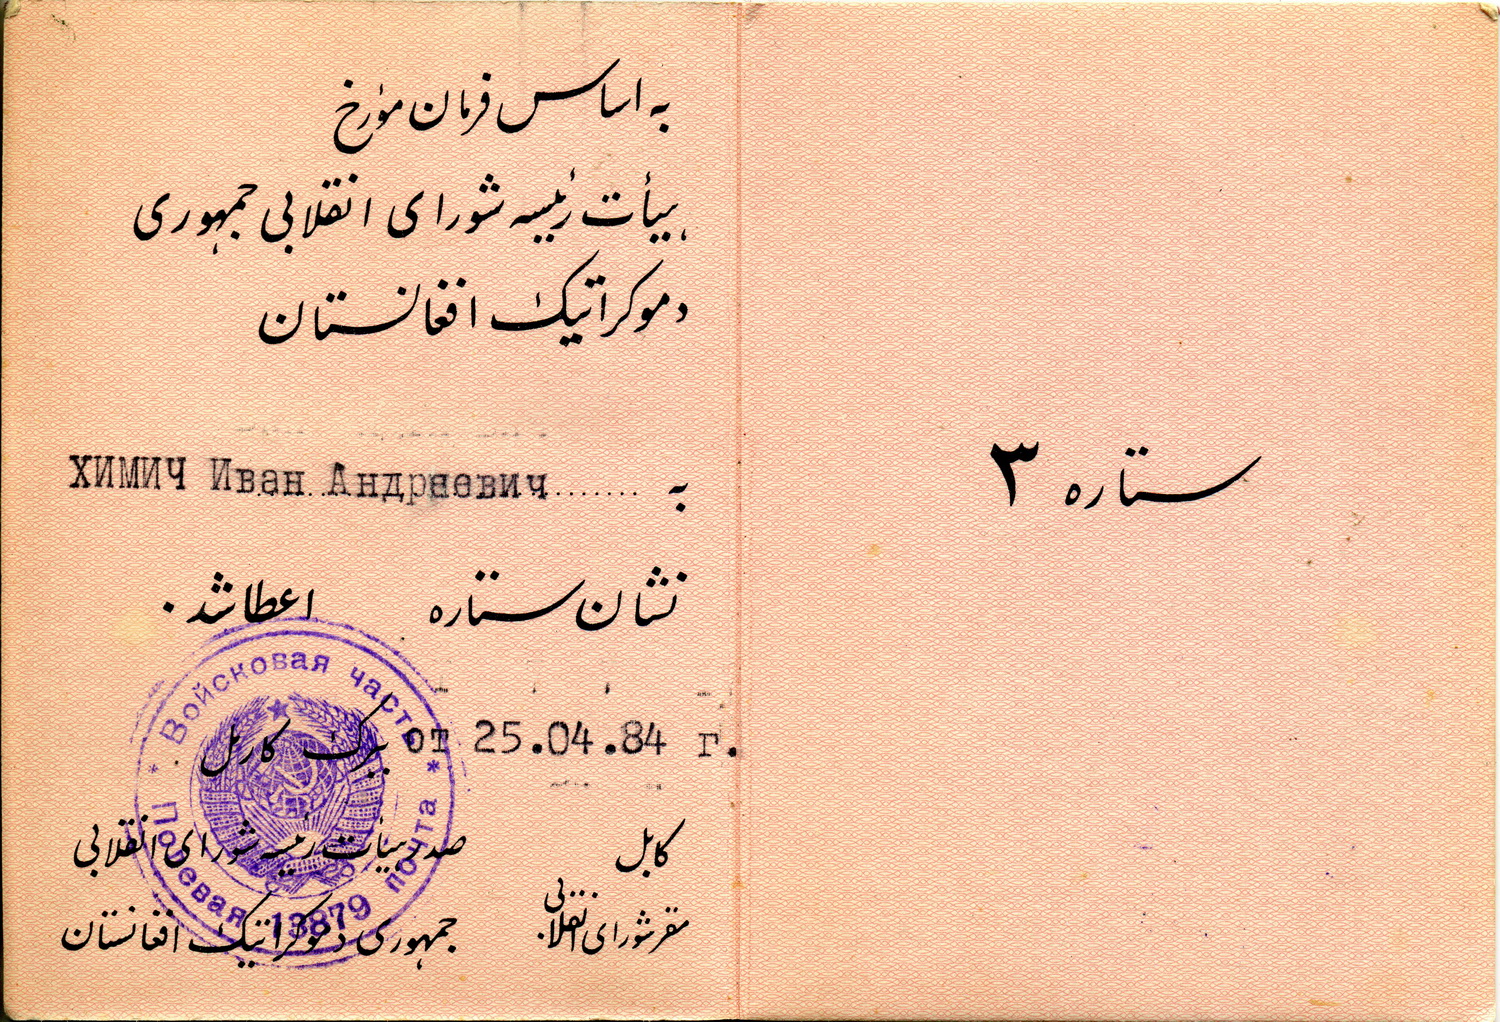 به اساس فرمان مؤرخ
هیأت رئیسه شورای انقلابی جمهوری
دموکراتیک افغانستان
به
ХИМИЧ Иван Андряевич
نشان ستاره اعطا شد.
от 25.04.84 г.
ببرک کارمل
صدر هیأت رئیسه شورای انقلابی
جمهوری دموکراتیک افغانستان
کابل
مقر شورای انقلابی
Войсковая часть
Полевая почта
13879
ستاره ۳